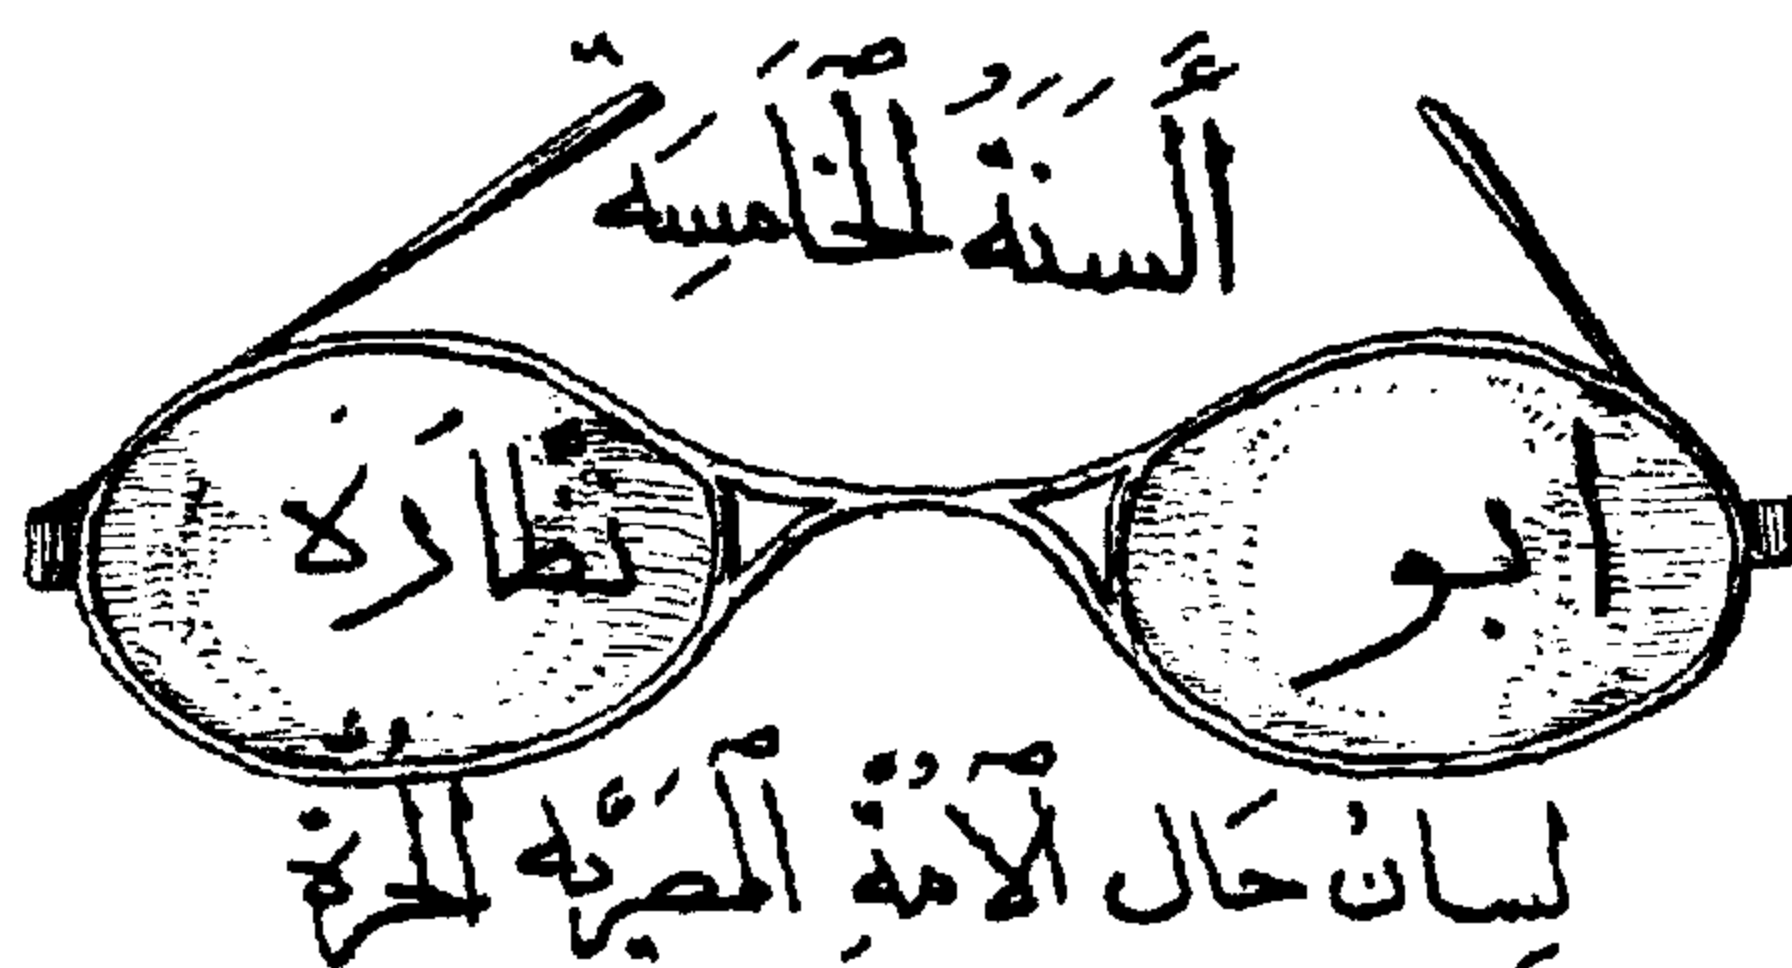 السنة الخامسه
ابو نظارة
لسان حال الامة المصريه الحرة